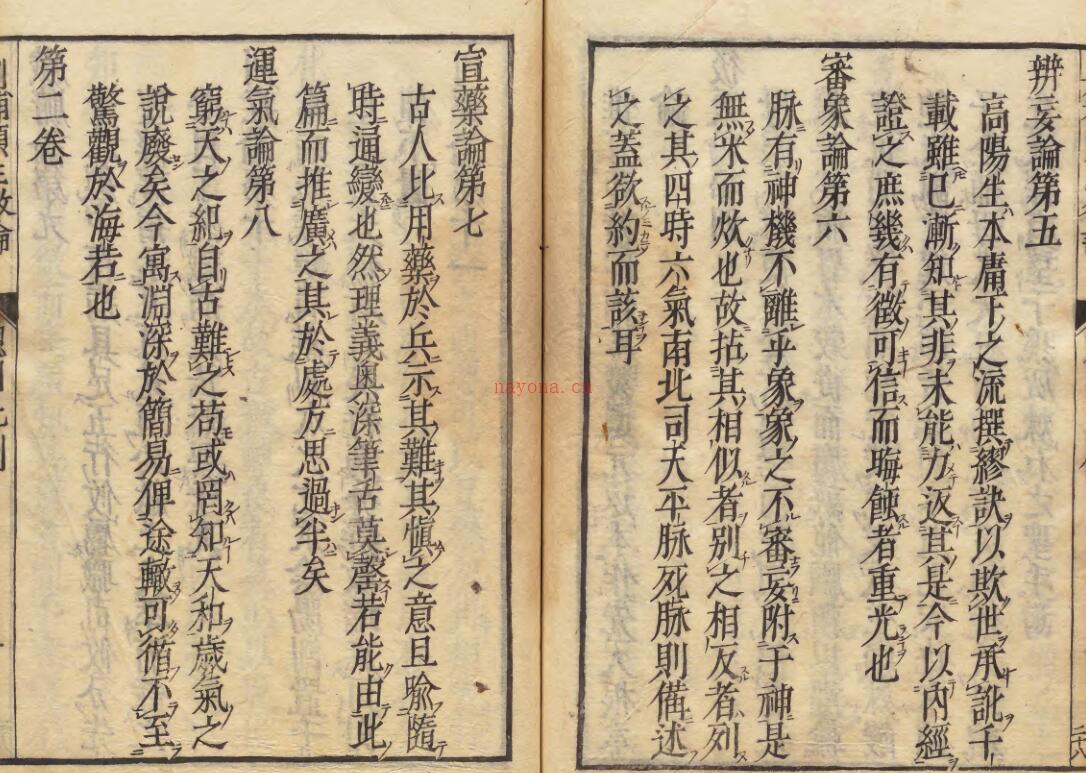 辨妄論第五
高陽生本庸下之流撰繆訣以欺世承訛千
載雖已漸知其非未能力返其是今以內經
證之庶幾有徵可信而晦蝕者重光也
審象論第六
脉有神機不離乎象象之不審妄附于神是
無米而炊也故拈其相似者別之相反者列
之其四時六氣南北司天平脉死脉則備述
之蓋欲約而該耳
宣藥論第七
古人比用藥於兵示其難其愼之意且喩隨
時通變也然理義奧深筆舌莫罄若能由此
篇而推廣之其於處方思過半矣
運氣論第八
窮天之紀自古難之苟或罔知天和歲氣之
說廢矣今寓淵深於簡易俾途轍可循不至
驚觀於海若也
第二卷
nayona.cn